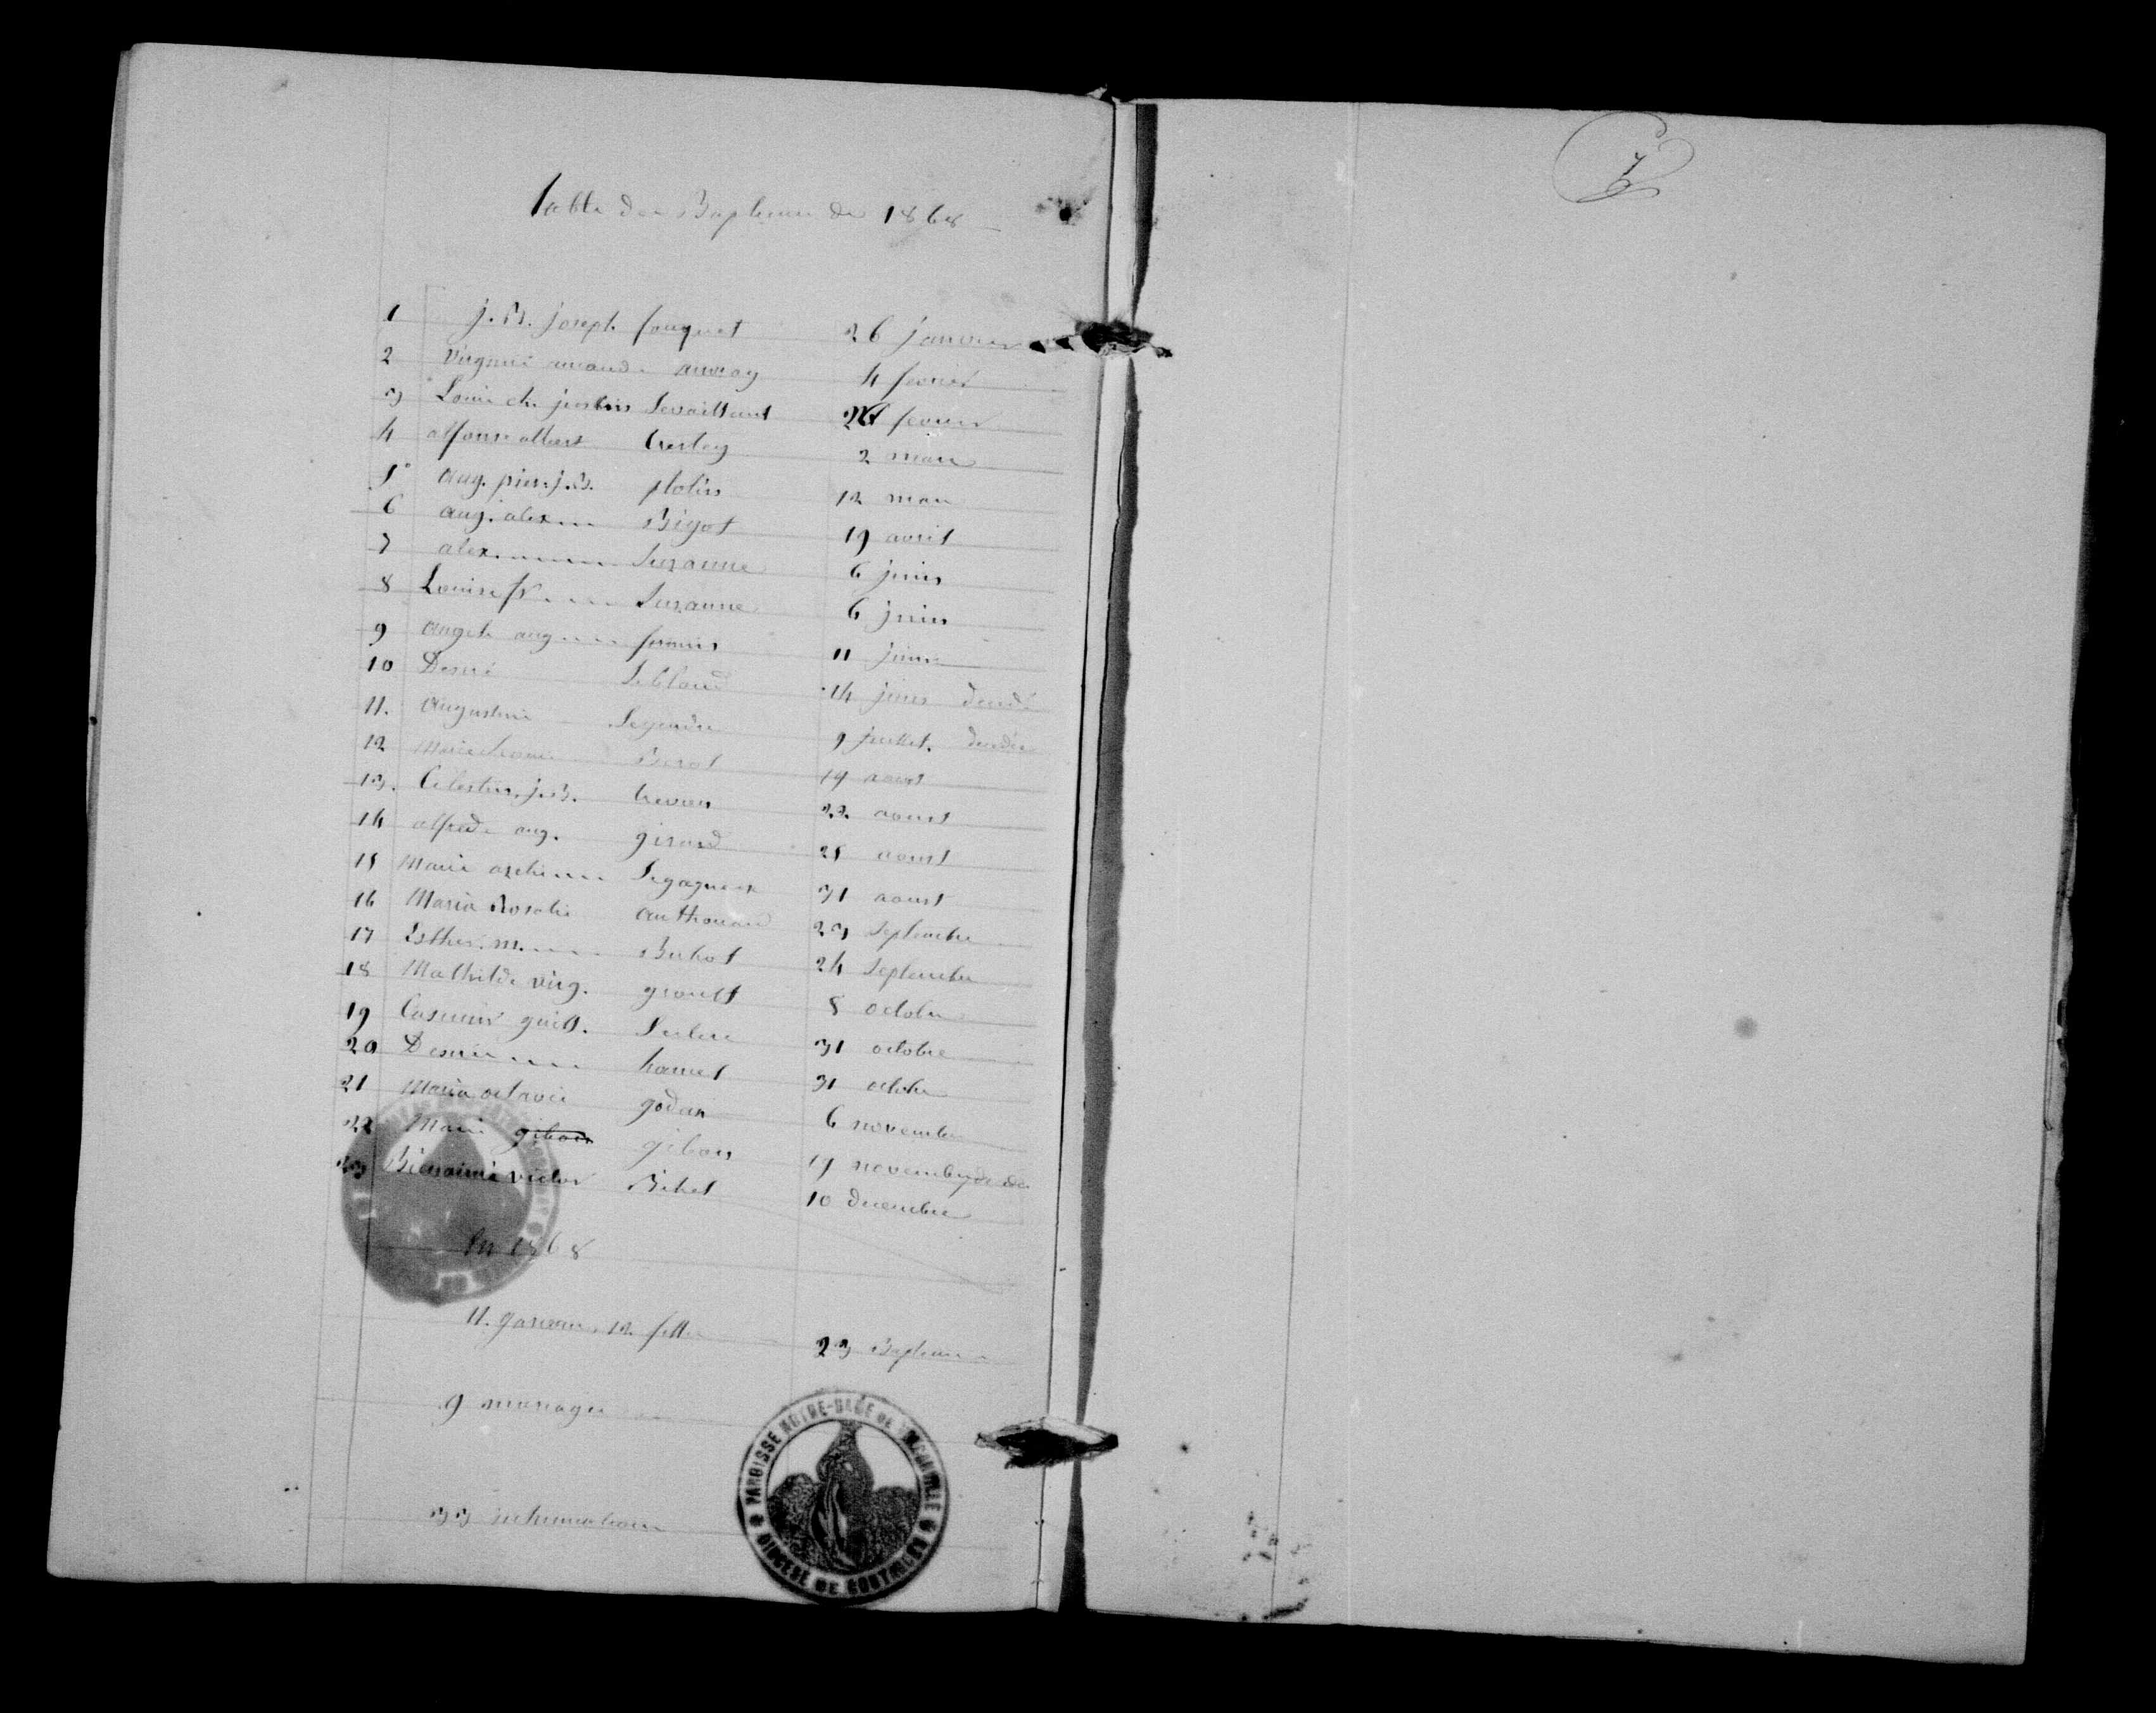 Table des Baptemes de 1868
7
1 j. B. joseph fouquet 26 janvier
2 Virginie amand. auvray 4 fevrier
3 Louis ch. justin Levaillant fevrier
4 alfonse albert 2 mars
5 aug. pierre j. B. 12 mars
6 aug. alex... Bigot 19 avril
7 alex....... Suzanne 6 juin
8 Louise fr.... Suzanne 6 juin
9 angele aug.... firmin 11 juin
10 Desiré Leblond 14 juin décédé
11. augustine Legendre 9 juillet. décédée
12 Marie 19 aoust
13. Celestin. j. B. 22 aoust
14 alfred aug. girard 25 aoust
15 Marie Legagneux 31 aoust
16 Maria Rosalie anthouard 23 septembre
17 Esther. m..... Buhot 24 septembre
18 Mathilde virg. groult 8 octobre
19 Casimir guill. 31 octobre
20 Desiré.... hamel 31 octobre
21 Maria octavie godan 6 novembre
22 Marie giban giban 19 novembre décédée
23 Bienaimé victor Bihel 10 decembre
En 1868
11. garcons, 12 filles 23 Baptemes
9 mariages
33 inhumations
PAROISSE NOTRE-DAME DE DIOCESE DE COUTANCES